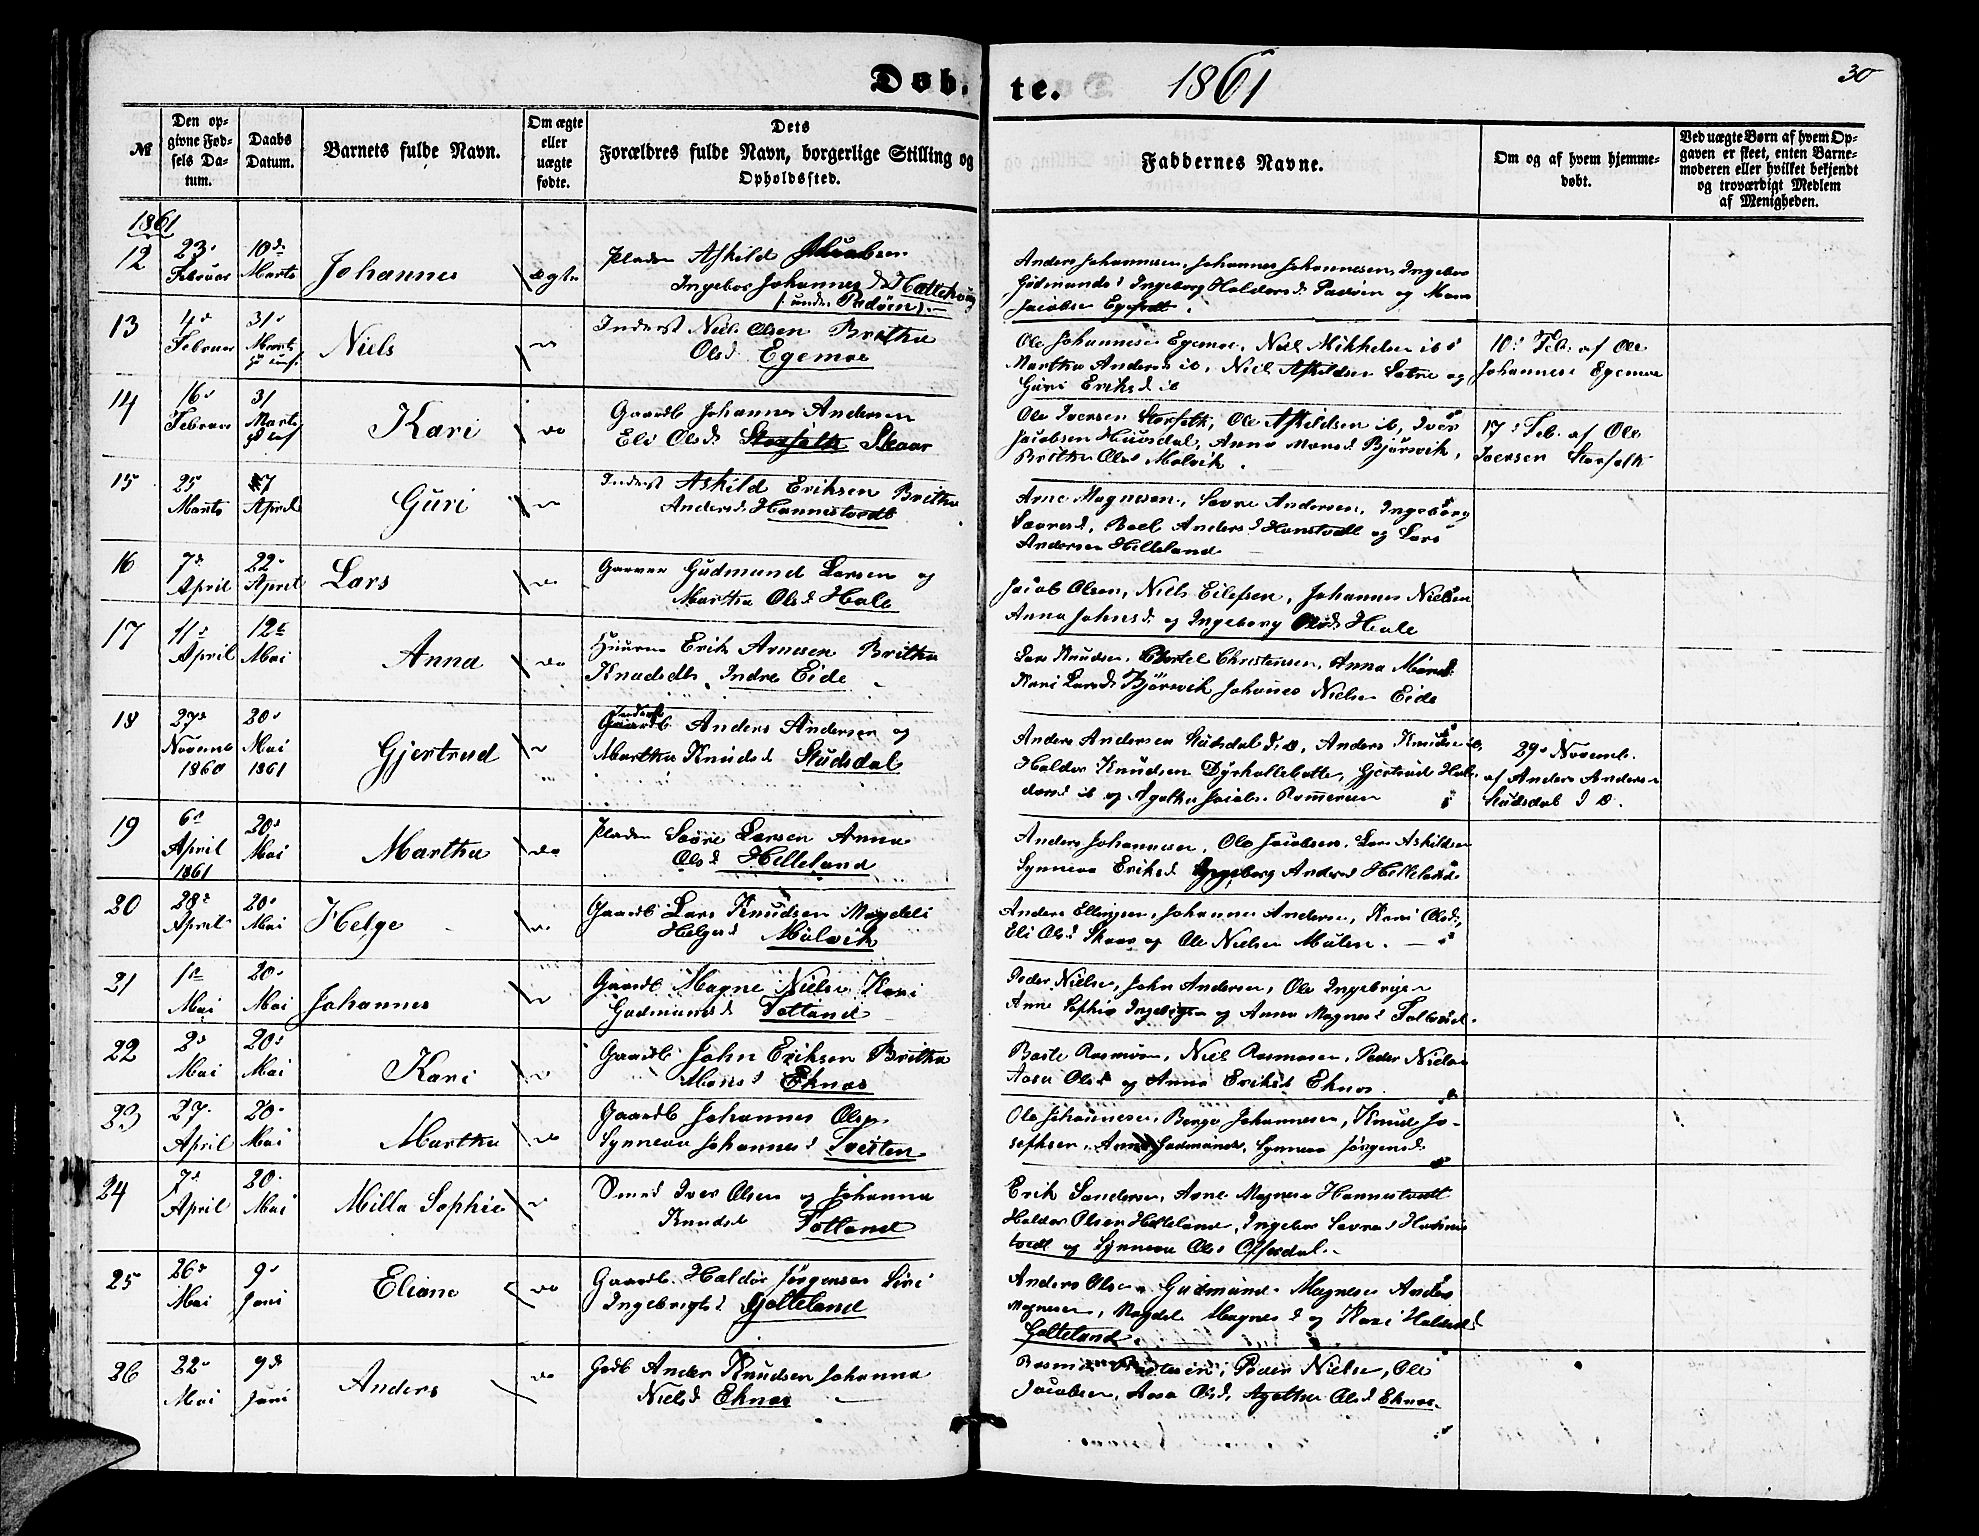 Døb-
te.
1861
30
№
Den op-
givne Fød-
sels Da-
tum.
Daabs
Datum.
Barnets fulde Navn.
Om ægte
eller
uægte
fødte.
Dets
Forældres fulde Navn, borgerlige Stilling og
Opholdssted.
Faddernes Navne.
Om og af hvem hjemme-
døbt.
Ved uægte Børn af hvem Op-
gaven er skeet, enten Barne-
moderen eller hvilket bekjendt
og troværdigt Medlem
af Menigheden.
1861
12
23
Februar
10d
Marts
Johannes
ægte
Pladsm Askild Jacobsen
Ingebor Johannesd Hattehoug
(under Padøin)
Anders Johannesen, Johannes Johannesen, Ingebor
Gudmundsd Ingeborg Haldorsd Padøin og Mons
Jacobsen Egetvedt
13
4
Februar
31
Marts
Niels
do
Inderst Niels Olsen Britha
Olsd Egemoe
Ole Johannesen Egemoe, Niels Mikkelsen ib
Martha Andersd ib, Niels Askildsen Sætre og
Guri Eriksd ib
10d Feb. af Ole
Johannesen Egemoe
14
16
Februar
31
Marts
Kari
do
Gaardb Johannes Andersen
Eli Olsd Storfolk Skaar
Ole Iversen Storfolk, Ole Askildsen ib, Iver
Jacobsen Huusdal, Anna Monsd Bjørsvik,
Britha Olsd Molvik
17d Feb. af Ole
Iversen Storfolk
15
25
Marts
7
April
Guri
do
Inderst Askild Eriksen Britha
Andersd Hannestvedt
Arne Magnesen, Sævre Andersen, Ingeborg
Sævresd, Boel Andersd Hanstvedt og Lars
Andersen Helleland
16
7d
April
22
April
Lars
do
Gudmund Larsen og
Martha Olsd Hole
Jacob Olsen, Niels Eilefsen, Johannes Nielsen
Anna Johnsd og Ingeborg Olsd Hole
17
11
April
12t
Mai
Anna
do
Huusm Erik Arnesen Britha
Knudsdt Indre Eide
Lars Knudsen, Bertel Christensen, Anna Monsd
Kari Larsd Bjørsvik Johannes Nielsen Eide
18
27
Novemb
1860
20
Mai
1861
Gjertrud
do
Inderst
Gaardb Anders Andersen og
Martha Knudsd Studsdal
Anders Andersen Studsdal d.æ, Anders Knudsen ib,
Haldor Knudsen Dyrkollebotte, Gjertrud Hal-
dorsd ib og Agatha Jacobs. Romereim
29 Novemb.
af Anders Andersen
Studsdal d æ.
19
6
April
1861
20
Mai
Martha
do
Pladsm Sævre Larsen Anna
Olsd Helleland
Anders Johannesen, Ole Jacobsen, Lars Askildsen
Synneva Eriksd Ingeborg Andersd Helleland
20
28
April
20
Mai
Helge
do
Gaardb Lars Knudsen Magdeli
Helgesd Molvik
Anders Ellingsen, Johannes Andersen, Kari Olsd,
Eli Olsd Skaar og Ole Nielsen Mulen.
21
1
Mai
20
Mai
Johannes
do
Gaardb Magne Nielsen Kari
Gudmundsd Totland
Peder Nielsen, John Andersen, Ole Ingebrigtsen
Anne Sophie og Anna Magnesd
22
2
Mai
20
Mai
Kari
do
Gaardb John Eriksen Britha
Monsd Eknæs
Rasmusen, Niels Rasmusen, Peder Nielsen
Aasa Olsd og Anna Eriksd Eknæs.
23
27
April
20
Mai
Martha
do
Gaardb Johannes Olsen
Synneva Johannesd Tveiten
Ole Johannesen, Børge Johannesen, Knud Jo-
sephsen, Anna Gudmunds, Synneva Jørgensd
24
7
April
20
Mai
Milla Sophie
do
Smed Iver Olsen og Johanna
Knudsd Totland
Erik Sandersen, Arne Magnesen Hannestvedt
Haldor Olsen Helleland, Ingebor Sævresd Hannes-
tvedt og Synneva Olsd
25
26
Mai
9
Juni
Eliane
do
Gaardb. Haldor Jørgensen Siri
Ingebrigtsd Golteland
Anders Olsen, Gudmund Magnesen Anders
Magnesen, Magdel Magnesd og Kari Haldorsd
Golteland
26
22
Mai
9d
Juni
Anders
do
Gdb Anders Knudsen Johanna
Nielsd Eknæs
Peder Nielsen, Ole
Jacobsen, Aasa Olsd, Agatha Olsd Eknæs.